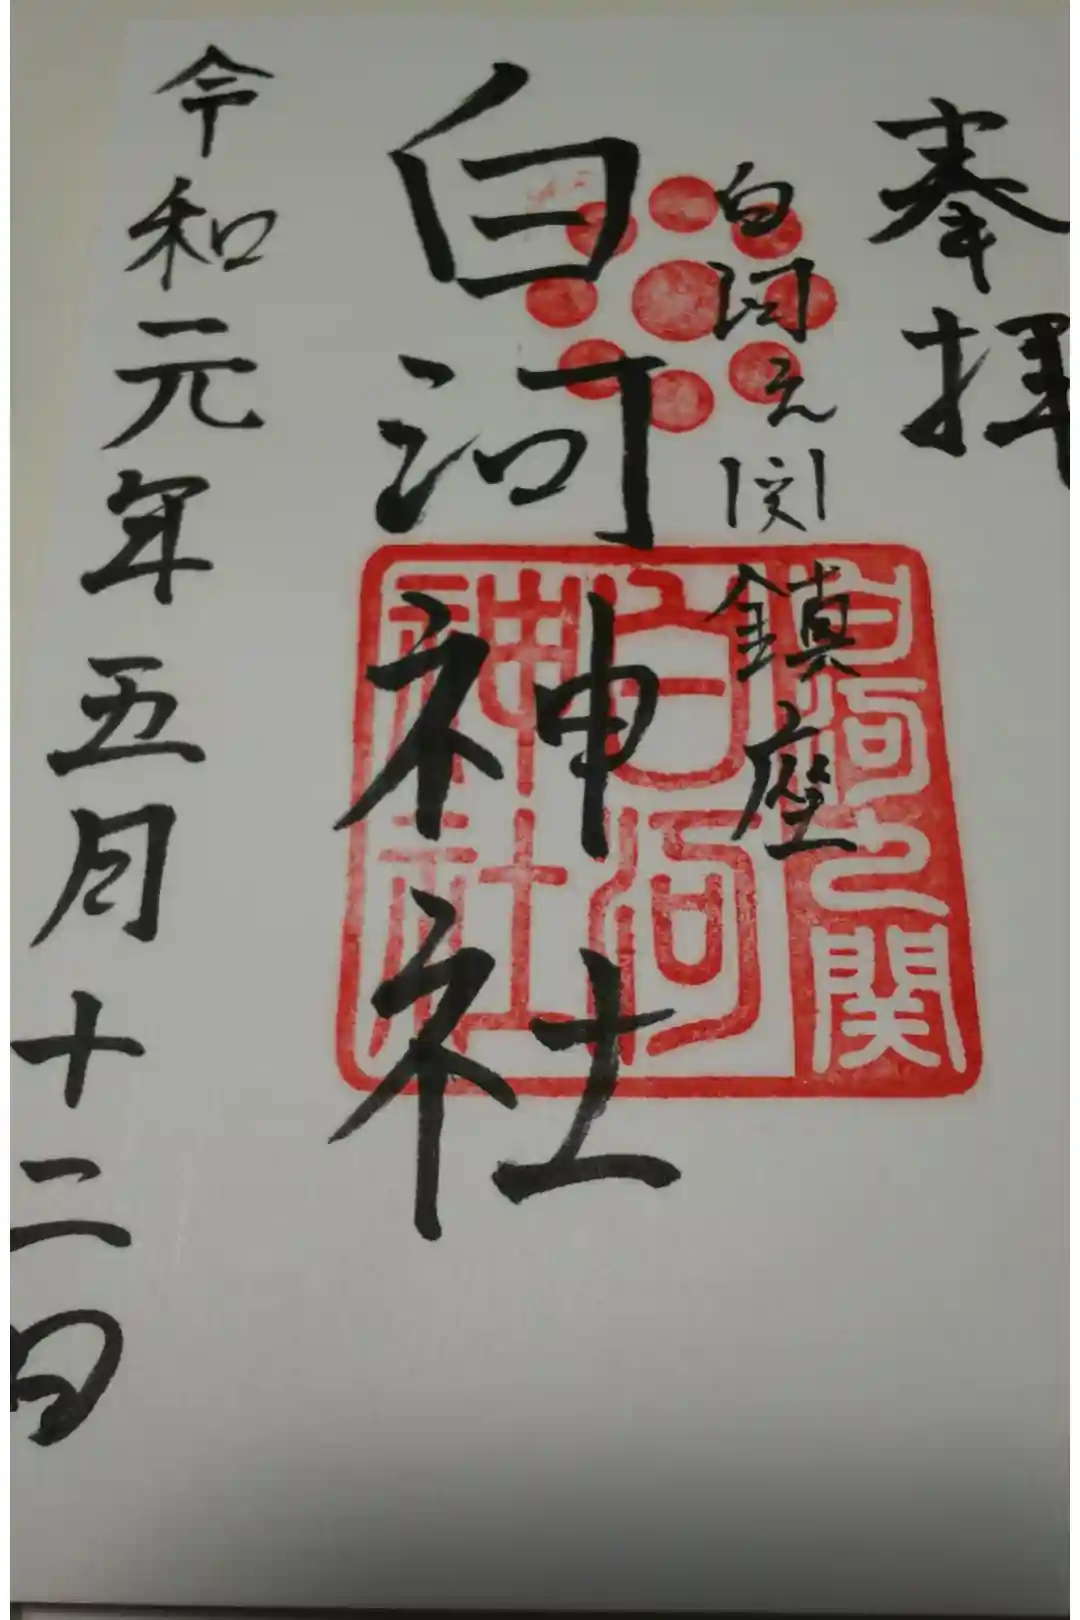 奉拝
白河之関鎮座
白河神社
令和元年五月十二日
白河之関
白河
神社